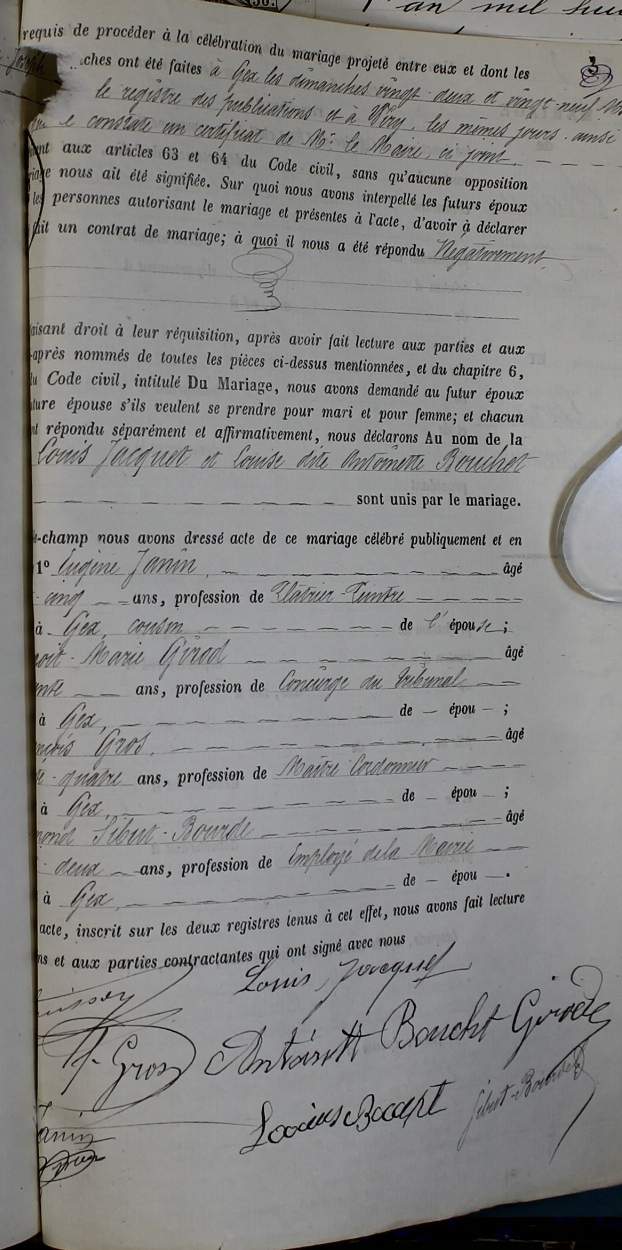 an mil huit
requis de procéder à la célébration du mariage projeté entre eux et dont les
Joseph ches ont été faites à Gex les dimanches vingt-deux et vingt-neuf
le registre des publications et à Viry, les mêmes jours, ainsi
constate un certificat de Mr. le Maire, ci joint
ment aux articles 63 et 64 du Code civil, sans qu'aucune opposition
riage nous ait été signifiée. Sur quoi nous avons interpellé les futurs époux
les personnes autorisant le mariage et présentes à l'acte, d'avoir à déclarer
fait un contrat de mariage; à quoi il nous a été répondu Négativement
aisant droit à leur réquisition, après avoir fait lecture aux parties et aux
-après nommés de toutes les pièces ci-dessus mentionnées, et du chapitre 6,
du Code civil, intitulé Du Mariage, nous avons demandé au futur époux
ture épouse s'ils veulent se prendre pour mari et pour femme; et chacun
nt répondu séparément et affirmativement, nous déclarons Au nom de la
Louis Jacquet et Louise dite Antoinette Bouchet
sont unis par le mariage.
-champ nous avons dressé acte de ce mariage célébré publiquement et en
1° Eugène Janin, âgé
cinq ans, profession de Plâtrier-Peintre
à Gex, cousin de l'épouse;
oit-Marie Girod âgé
ente ans, profession de Concierge du Tribunal
à Gex, de — épou — ;
ançois Gros, âgé
-quatre ans, profession de Maître Cordonnier
à Gex, de — épou — ;
mond Sibut-Bourde âgé
-deux ans, profession de Employé de la Mairie
à Gex, de — épou — .
acte, inscrit sur les deux registres tenus à cet effet, nous avons fait lecture
ns et aux parties contractantes qui ont signé avec nous
Louis Jacquet
F. Gros Antoinett Bouchet Girod
Bouchet Sibut-Bourde
Janin